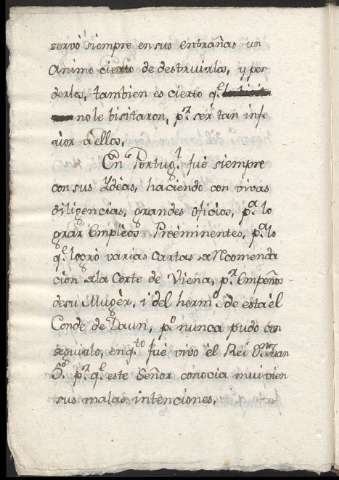 servó siempre en sus entrañas un
animo cierto de destruirla, y per
derla, tambien es cierto q.e
no le bisitaron, p.r ser tan infe
rior á ellos.
En Portug.l fué siempre
con sus Ideas, haciendo con vivas
diligencias, grandes oficios, p.a lo
grar Empleos Preeminentes, p.a lo
q.e logró varias Cartas de Recomenda
cion a la Corte de Viena, p.r Empeños
de su Muger, i del herm.o de esta él
Conde de Daun, p.o nunca pudo con
seguirlo, en q.to fué vivo él Rei D.n Juan
5.o p.r q.e este Señor conocia mui bien
sus malas intenciones.